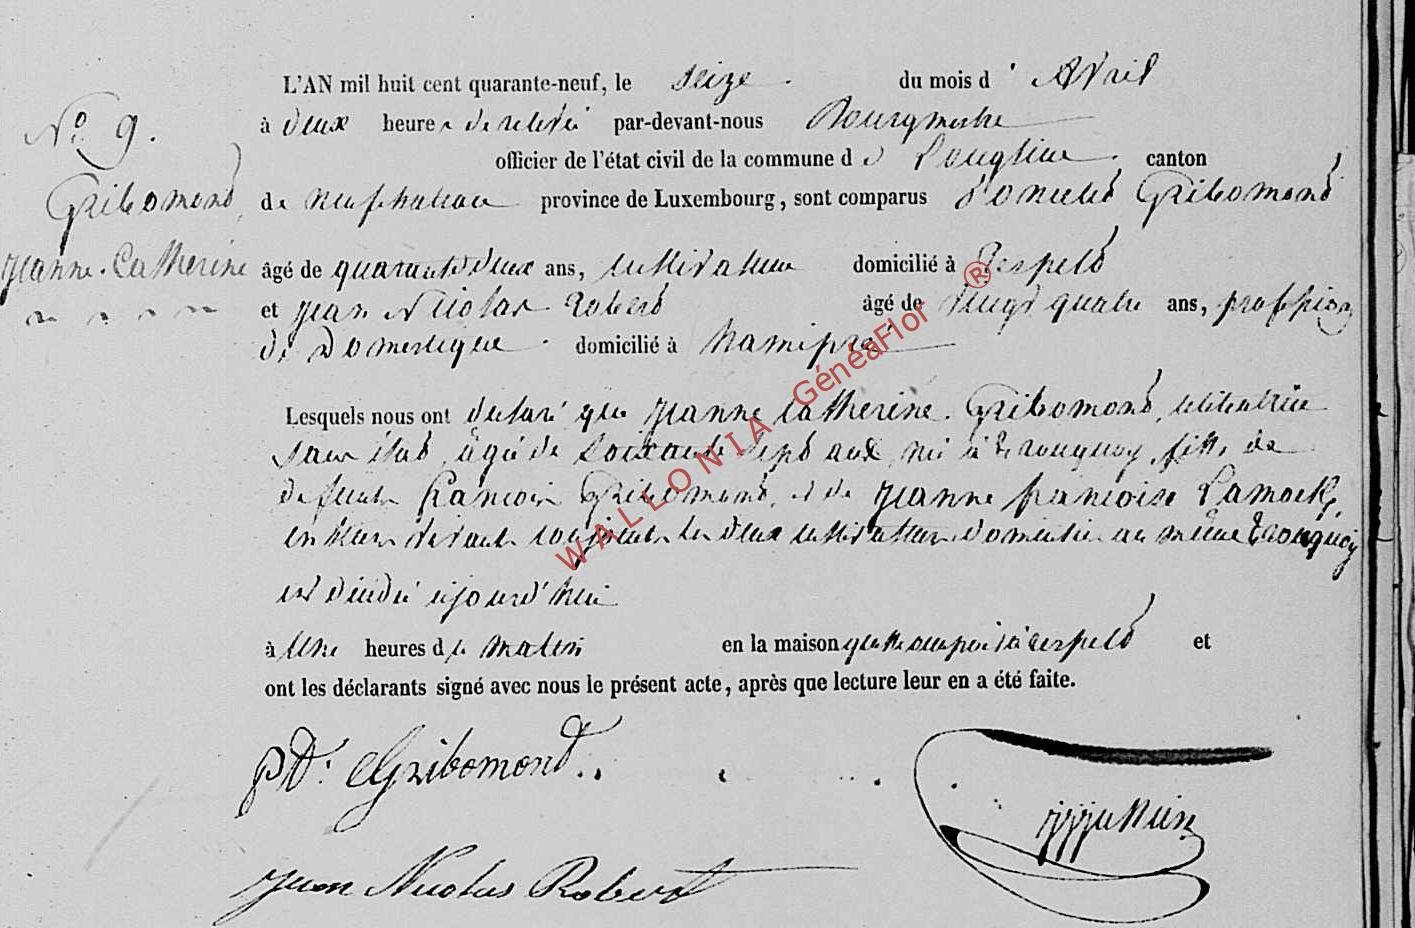 L'AN mil huit cent quarante-neuf, le seize du mois d'Avril
N° 9.
à deux heures de relevé par-devant-nous Bourgmestre
officier de l'état civil de la commune de Longlier canton
Gribomond
de neufchateau province de Luxembourg, sont comparus Gribomond
Jeanne-Catherine
âgé de quarante deux ans, cultivateur domicilié à Respelt
et Jean Nicolas Robert âgé de vingt quatre ans, profession
de Domestique domicilié à Namipré
Lesquels nous ont declaré que Jeanne Catherine Gribomond, celibataire
sans état, agée de soixante sept ans, née à Tronquoy, fille de
defunts francois Gribomond, et de Jeanne francoise Lamock,
en leur vivant conjoints les deux cultivateurs domiciliés au même Tronquoy
est décédée aujourd'hui
à Une heures du matin en la maison qu'elle occupait à Respelt et
ont les déclarants signé avec nous le présent acte, après que lecture leur en a été faite.
PD. Gribomond
Jean Nicolas Robert
WALLONIA GénéaFlor ®